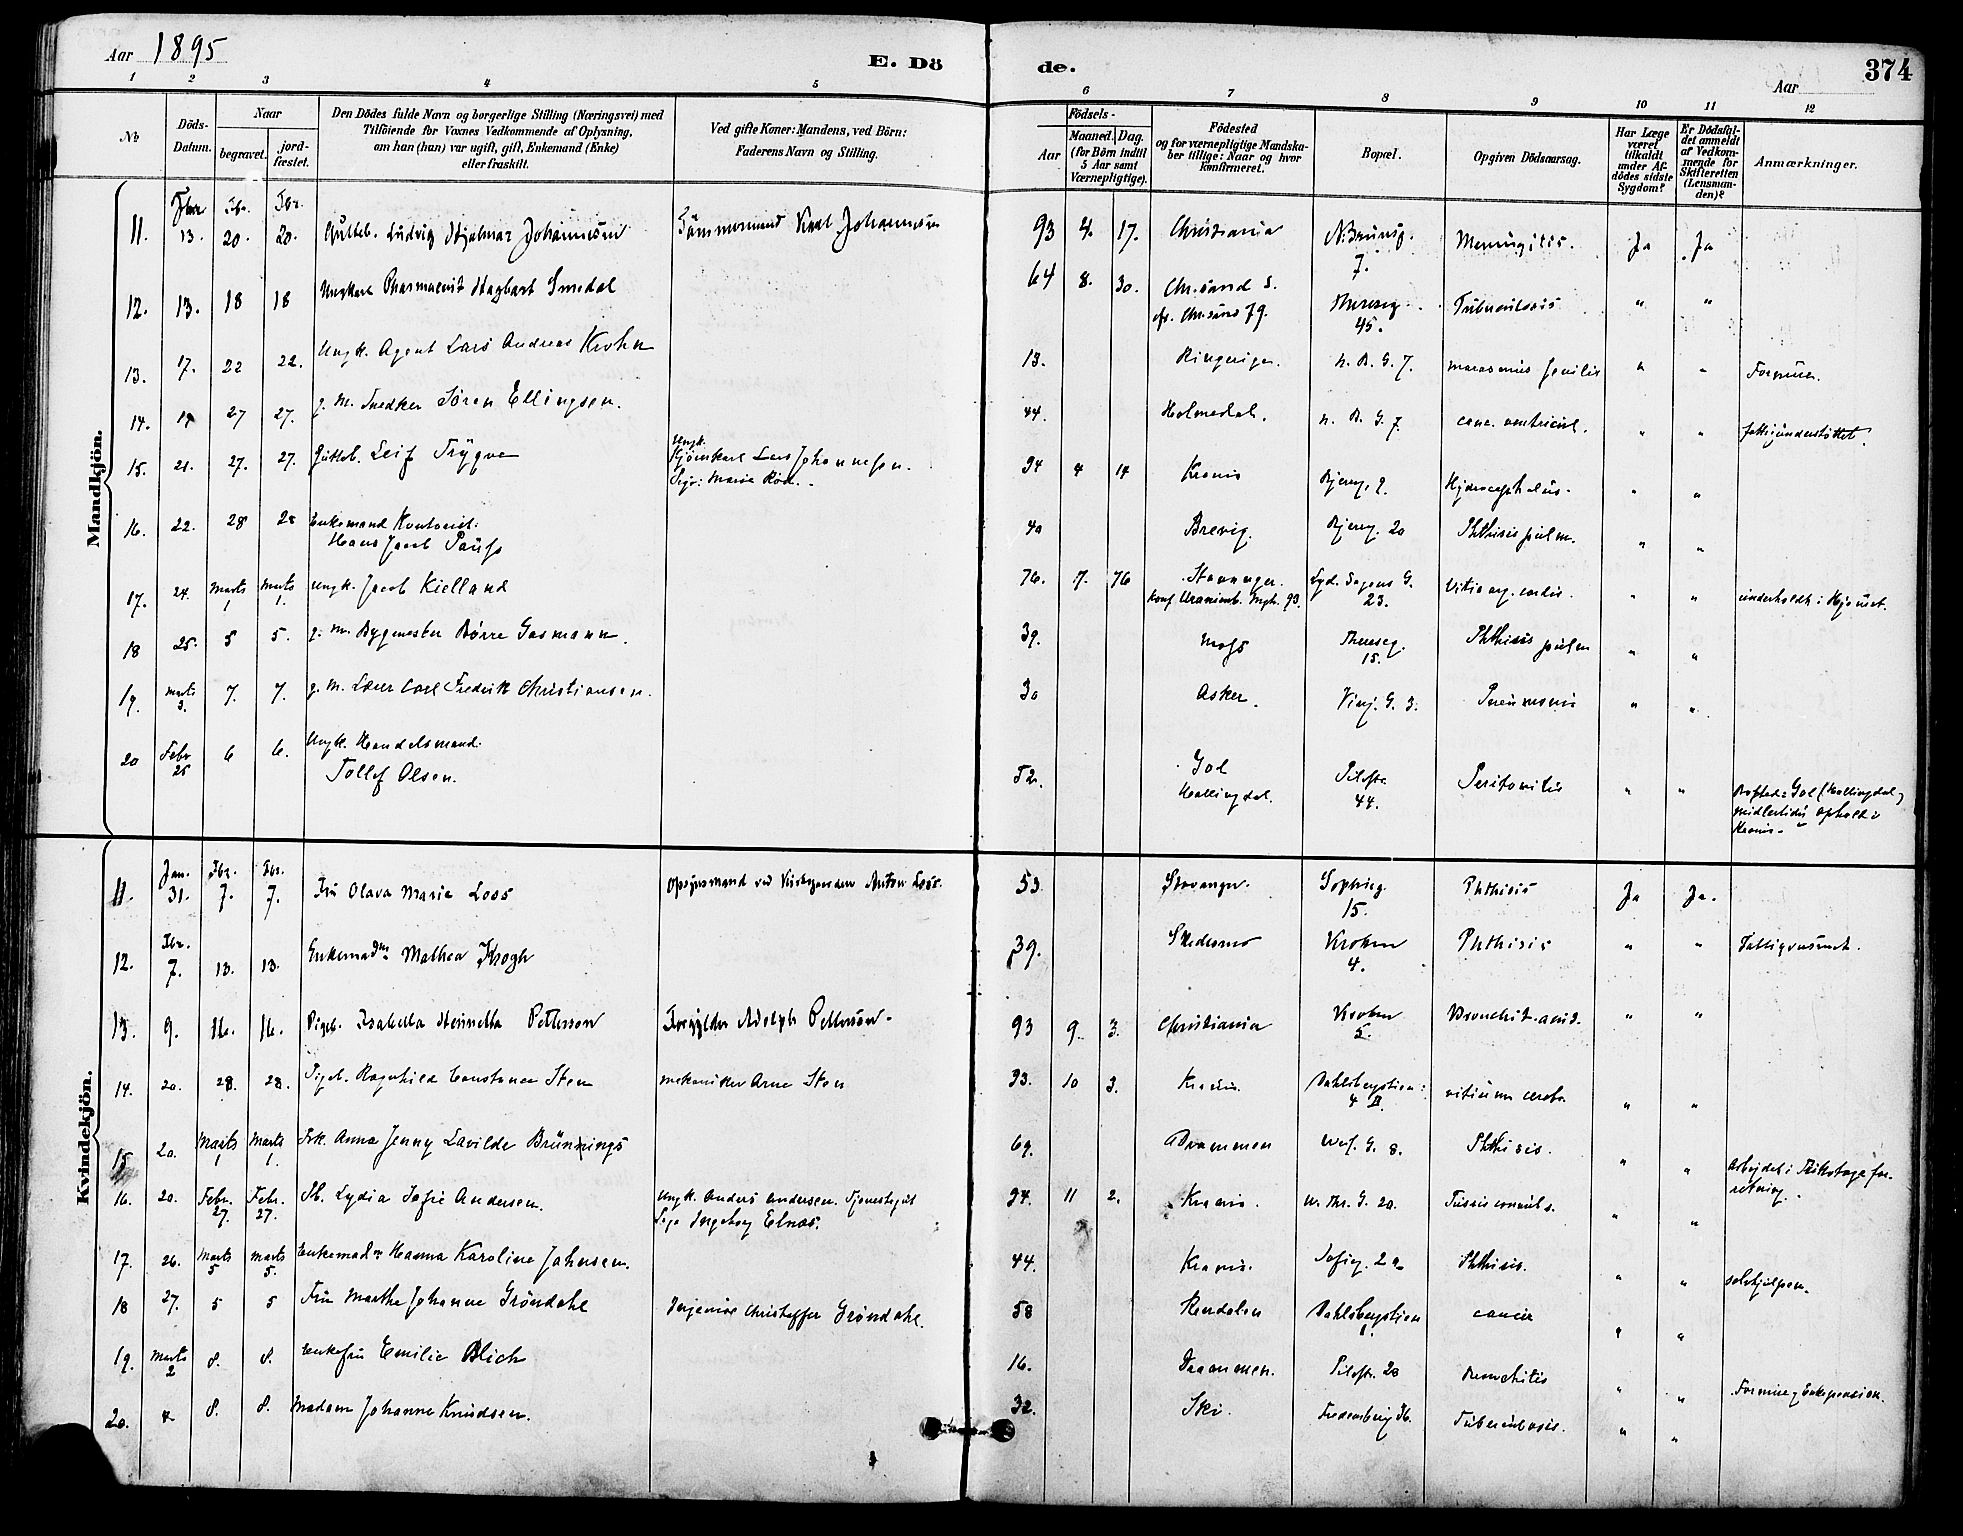 Aar 1895
E. Dö
de.
Aar
374
1 2 3 4 5 6 7 8 9 10 11 12
No
Döds-
Datum.
Naar
begravet.
jord-
fæstet.
Den Dödes fulde Navn og borgerlige Stilling (Næringsvei) med
Tilföiende for Voxnes Vedkommende af Oplysning,
om han (hun) var ugift, gift, Enkemand (Enke)
eller fraskilt.
Ved gifte Koner: Mandens, ved Börn:
Faderens Navn og Stilling.
Födsels-
Aar
Maaned. Dag.
(for Börn indtil
5 Aar samt
Værnepligtige).
Födested
og for værnepligtige Mandska-
ber tillige: Naar og hvor
konfirmeret.
Bopæl.
Opgiven Dödsaarsag.
Har Læge
været
tilkaldt
under Af-
dödes sidste
Sygdom?
Er Dödsfal-
det anmeldt
af Vedkom-
mende for
Skifteretten
(Lensman-
den)?
Anmærkninger.
Mandkjön.
Fbr. Fbr.
11. 13. 20. 20. Gutteb. Ludvig Hjalmar Johannesen Tömmermand Karl Johannesen 93 4. 17. Christiania 7. Meningitis. Ja Ja
12. 13. 18 18 Ungkarl Pharmaceut Hagbart Smedal 64 8. 30. Chr.sand S. Theresesg. 45. Tuberculosis " "
13. 17. 22 22. Ungk. Agent Lars Andreas Krohn 13. Ringerige. n. R. G. 7. marasmus senilis " " Formue.
14. 27 27. g. M. Snedker Sören Ellingsen. 44. Holmedal. n. R. G. 7. canc. ventricul. " " fattigunderstöttet.
15. 21. 27. 27. Gutteb. Leif Trygve Ungk.
Kjörekarl Lars Johannesen.
Pige: Marie Röd. 94 4 14 Krania Bjerreg. 9. Hydrocephalus. " "
16. 22. 28 28 Enkemand Kontorist:
Hans Jacob Paus 40 Brevig. Bjerreg. 20 Phthisis pulm. " "
17. 24. Marts 1 Marts 1. Ungk. Jacob Kielland 76. 7. 76 Stavanger. Lyd. Sagens G. 23. Vitio org. cordis. " " underholdt i Hjemmet.
18 25. 5 5. g. M. Bygmester Börre Gasmann. 39. Moss Thereseg. 15. Phthisis pulm " "
19. Marts 3. 7. 7. g. M. Carl Fredrik Christiansen. 30 Asker. Vinj. G. 3. Pneumonia " "
20 Febr 25 6 6. Ungk. Handelsmand.
Tollef Olsen. 52. Gol
Hallingdal. Pilestr. 44. Peritonitis " " Bosted: Gol (Hallingdal)
midlertidig ophold i
Krania.
Kvindekjön.
11. Jan. 31. Fbr. 7. Fbr. 7. Fru Olava Marie Loss Opsynsmand ved Kirkegaarden Anton Loss. 53 Stavanger. Sophiesg. 15. Phthisis Ja Ja.
12. Fbr. 7. 13. 13. Enkemadm Mathea Krogh 39. Skedsmo Kroken 4. Phthisis " " Fattigvæsenet.
13. 9. 16. 16. Pigeb. Isabella Henriette Petterson Forgylder Adolph Petterson. 93 9. 3. Christiania Kroken 5. Bronchit. acut. " "
14. 20. 28. 28. Pigeb. Ragnhild Constance Sten mekaniker Arne Sten 93. 10 3. Krania. Dahlsbergstien 4 II. vitium cerebr. " "
15 20. Marts 1 Marts 1. Frk. Anna Jenny Lavilde Brünnings 69. Drammen Wesf. G. 8. Phthisis. " " Arbejdet i Trikotagefor-
retning.
16. 20. Febr. 27. Febr. 27. Pb. Lydia Sofie Andersen. Ungk. Anders Andersen. Tjenestegut
Pige Ingeborg Elnæs. 94. 11 2. Krania. n. Thr. G. 20. Tussis convuls. " "
17. 26. Marts 5 Marts 5. Enkemadm Hanna Karoline Johnsen. 44. Krania. Sofieg. Phthisis. " " selvhjulpen.
18 27. 5 5 Fru Marthe Johanne Gröndahl Ingeniör Christoffer Gröndahl. 58 Rendalen Dahlsbergstien 1. cancer " "
19. Marts 2 8. 8. Enkefru Emilie Blich 16. Drammen. Pilestr. 28 Bronchitis " " Formue og Enkepension.
20. 8. 8. Madam Johanne Knudsen. 32. Ski. Fredensborg Tuberculosis. " "